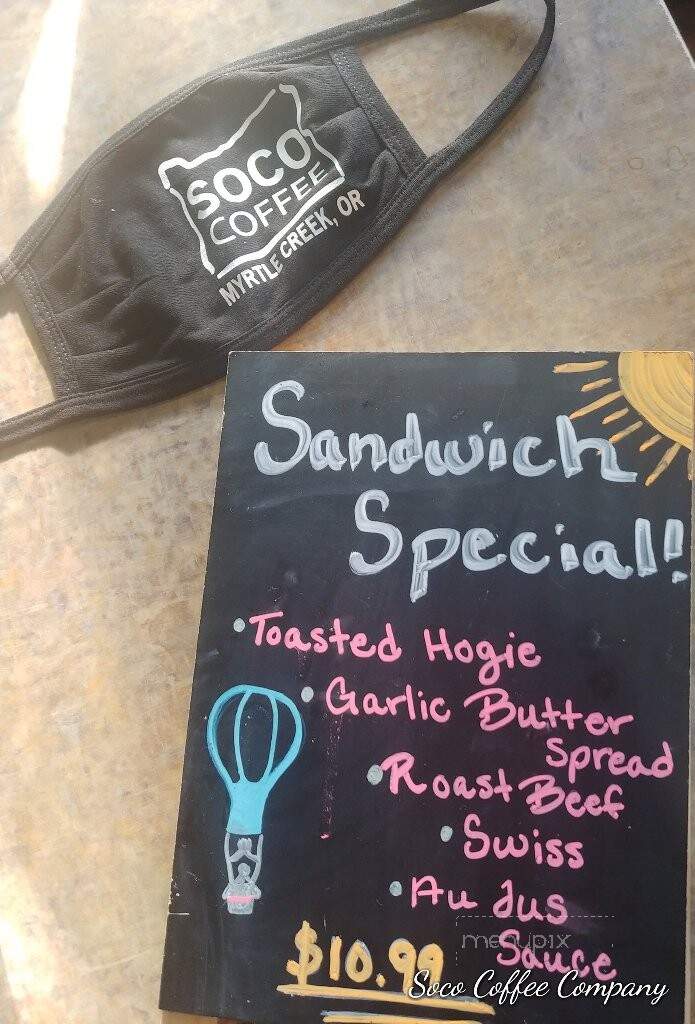 SOCO
COFFEE
MYRTLE CREEK, OR
Sandwich
Special!
• Toasted Hogie
• Garlic Butter
Spread
• Roast Beef
• Swiss
• Au Jus
Sauce
$10.99
menupix
Soco Coffee Company